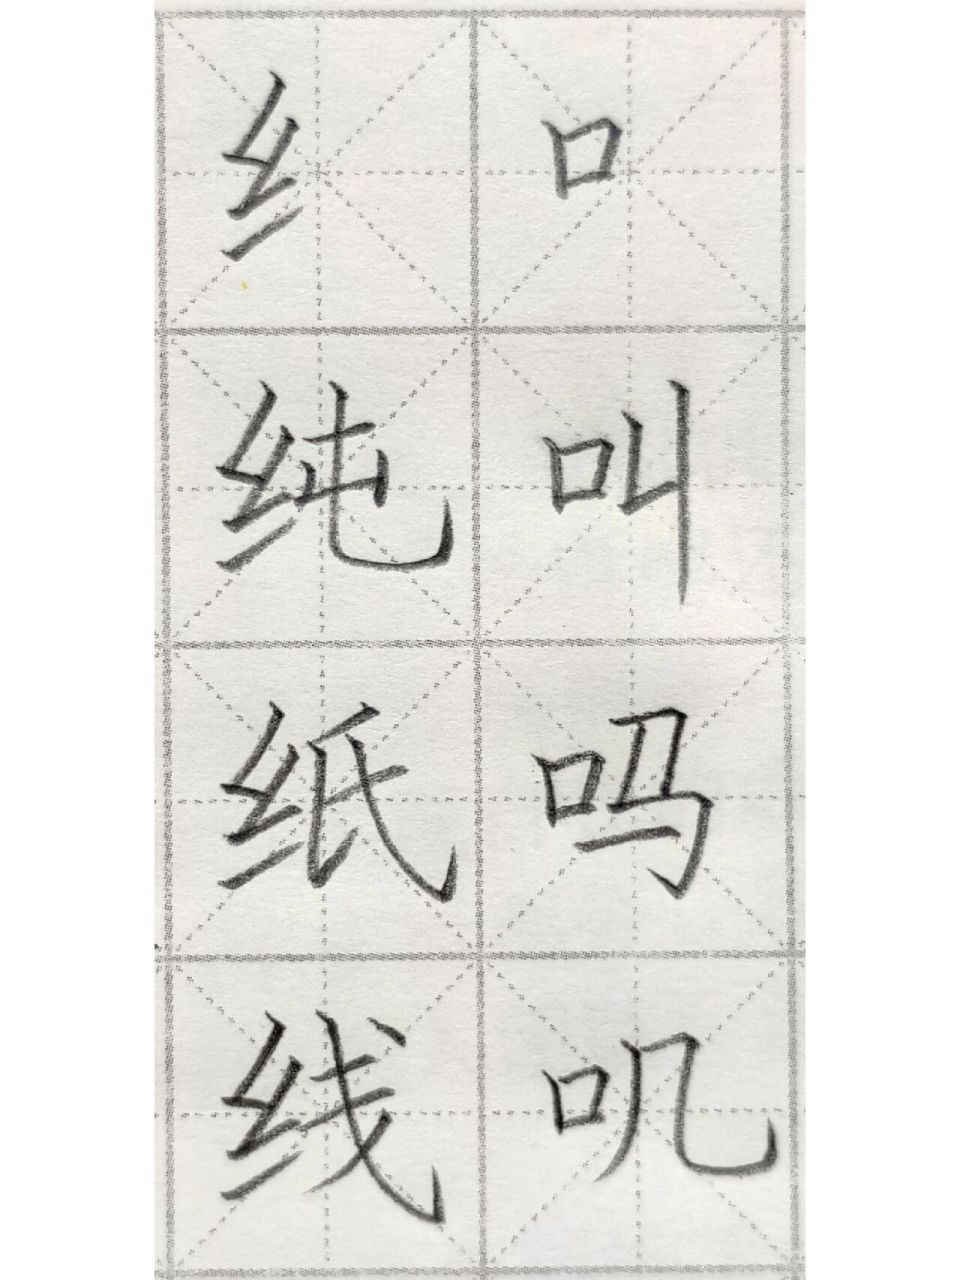 纟 口
纯 叫
纸 吗
线 叽